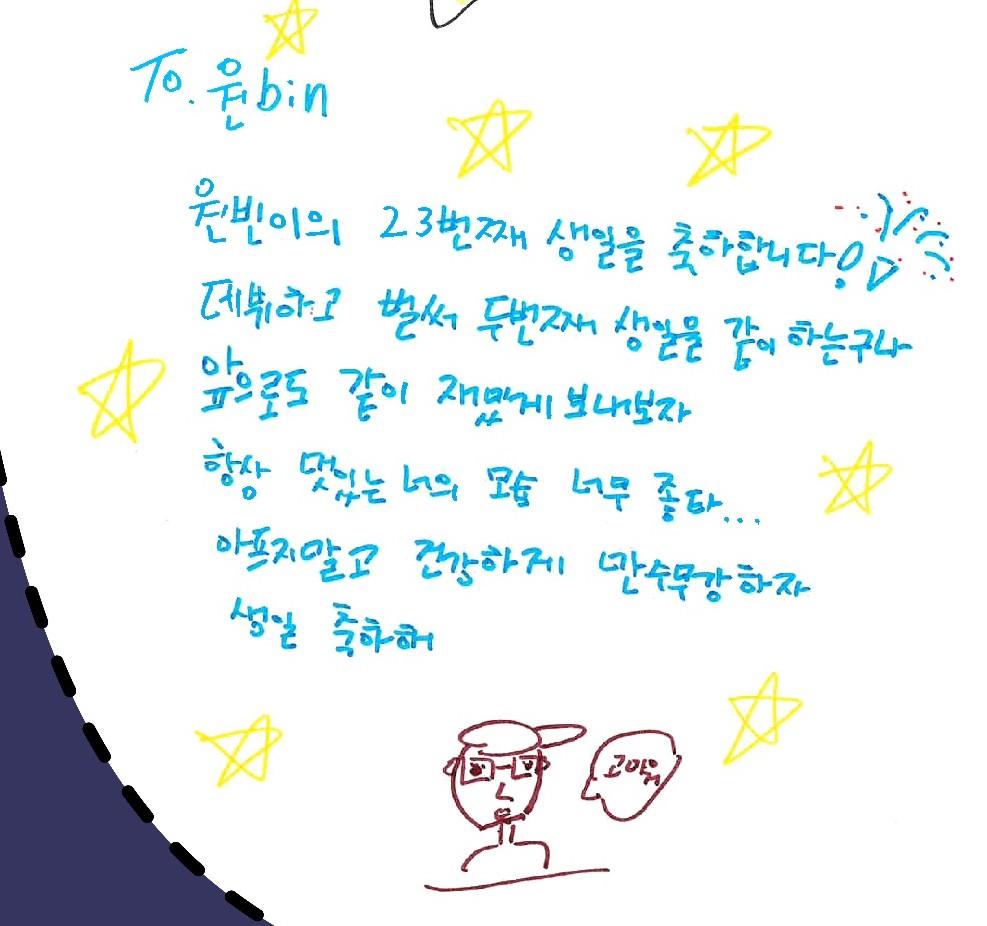 To. 원bin
원빈이의 23번째 생일을 축하합니다!
데뷔하고 벌써 두번째 생일을 같이 하는구나
앞으로도 같이 재밌게 보내보자
항상 멋있는 너의 모습 너무 좋다...
아프지말고 건강하게 만수무강하자
생일 축하해
고마워